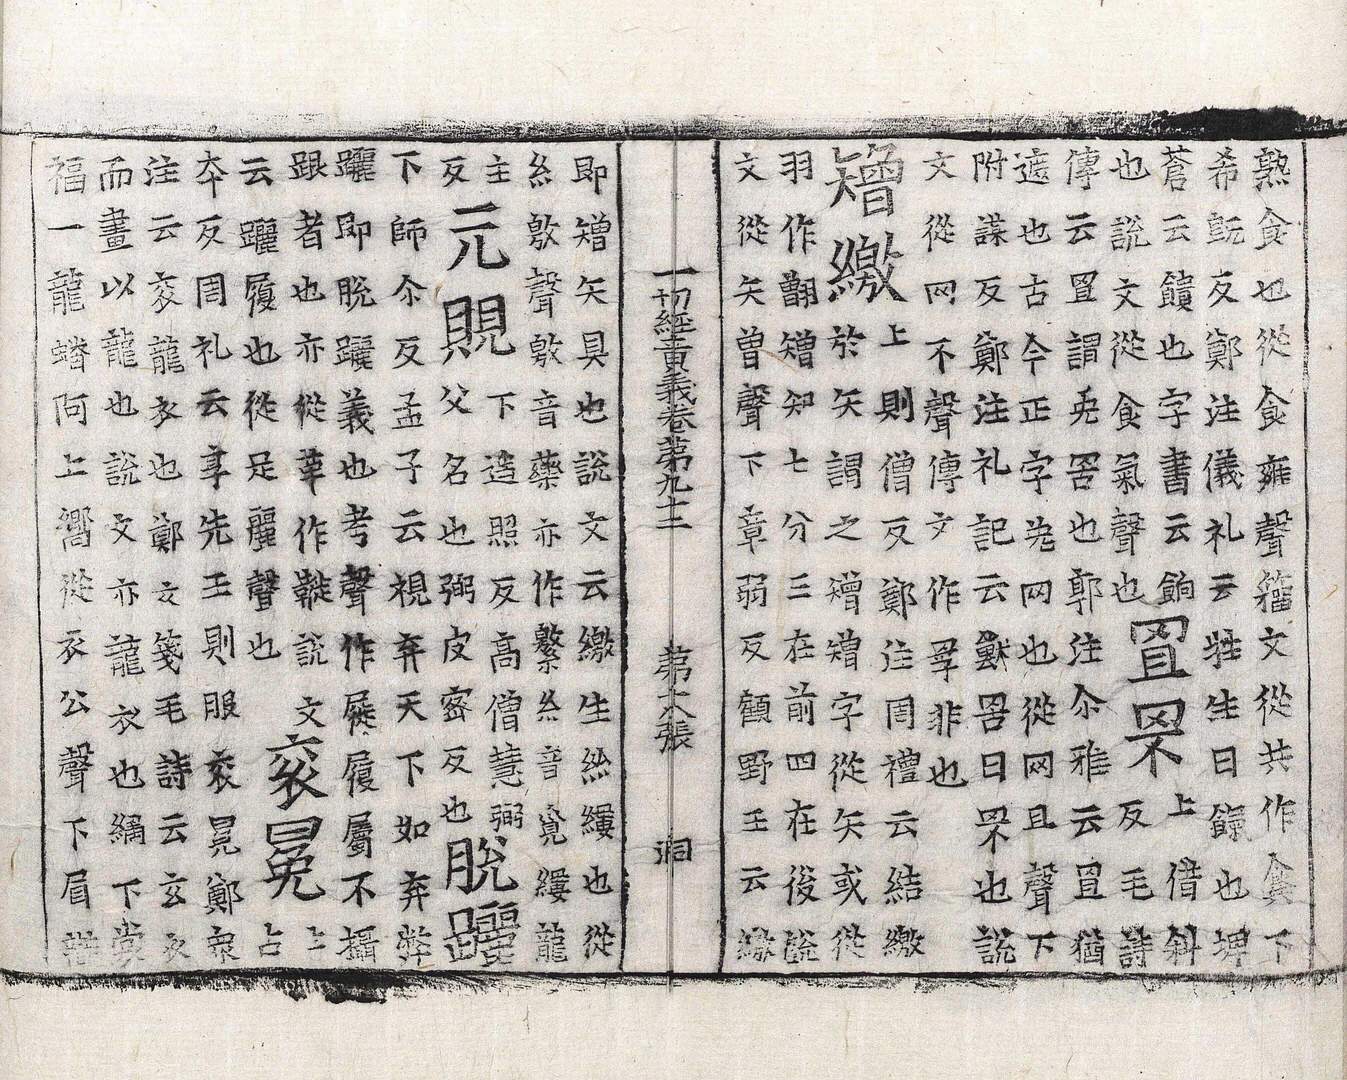 熟食也從食雍聲籀文從共作𩜹下
希旣反鄭注儀礼云牲生曰餼也埤
蒼云饋也字書云餉罝罘上借斜
也說文從食氣聲也反毛詩
傳云罝謂兎罟也郭注尒雅云罝猶
遮也古今正字兎网也從网且聲下
附謀反鄭注礼記云獸罟曰罘也說
文從网不聲傳文作羃非也
矰繳上則僧反鄭注周禮云結繳
於矢謂之矰矰字從矢或從
羽作䎖矰知七分三在前四在後說
文從矢曽聲下章弱反顧野王云繳
一切經音義卷第九十二 第六張 洞
即矰矢具也說文云繳生絲縷也從
糸敫聲敫音藥亦作繁糸音覓縷龍
主下造照反高僧慧弼
元覞父名也弼皮密反也脫躧
下師尒反孟子云視弃天下如弃弊
躧即脫躧義也考聲作屣履屬不攝
跟者也亦從革作韈說文
云躧履也從足麗聲也袞冕上
夲反周礼云享先王則服袞冕鄭衆
注云袞龍衣也鄭玄箋毛詩云玄衣
而畫以龍也說文亦龍衣也繡下裳
福一龍蟠阿上嚮從衣公聲下眉